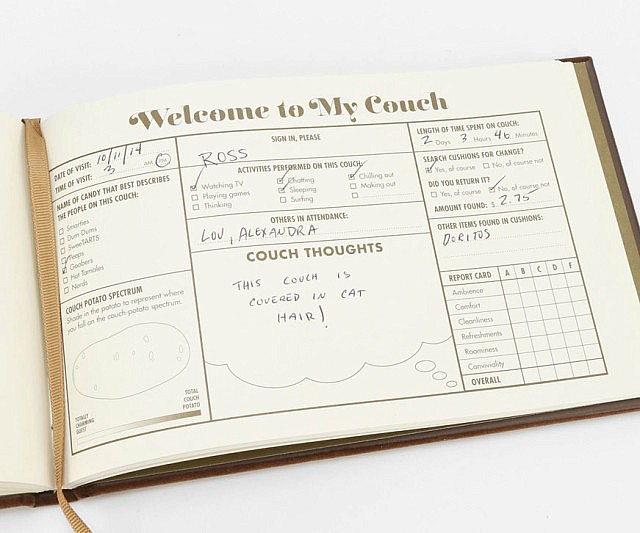 Welcome to My Couch
DATE OF VISIT: 10/11/14
TIME OF VISIT: 3 AM PM
NAME OF CANDY THAT BEST DESCRIBES
THE PEOPLE ON THIS COUCH:
Smarties
Dum Dums
SweeTARTS
Peeps
Goobers
Hot Tamales
Nerds
COUCH POTATO SPECTRUM
Shade in the potato to represent where
you fall on the couch-potato spectrum.
TOTALLY
CHARMING
GUEST
TOTAL
COUCH
POTATO
SIGN IN, PLEASE
ROSS
ACTIVITIES PERFORMED ON THIS COUCH:
Watching TV Chatting Chilling out
Playing games Sleeping Making out
Thinking Surfing
OTHERS IN ATTENDANCE:
LOU, ALEXANDRA
COUCH THOUGHTS
THIS COUCH IS
COVERED IN CAT
HAIR!
LENGTH OF TIME SPENT ON COUCH:
2 Days 3 Hours 46 Minutes
SEARCH CUSHIONS FOR CHANGE?
Yes, of course No, of course not
DID YOU RETURN IT?
Yes, of course No, of course not
AMOUNT FOUND: $ 2.75
OTHER ITEMS FOUND IN CUSHIONS:
DORITOS
REPORT CARD A B C D F
Ambience
Comfort
Cleanliness
Refreshments
Roominess
Conviviality
OVERALL